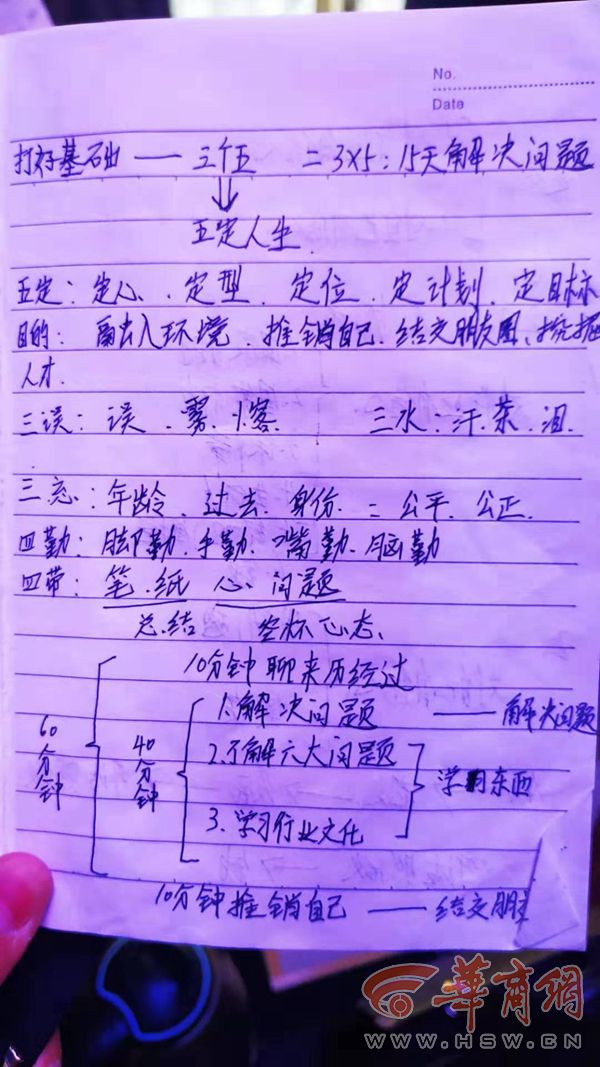 No.
Date
打好基础 — 三个五 = 3×5: 15天解决问题
五定人生
五定: 定心、定型、定位、定计划、定目标
目的: 融入环境、推销自己、结交朋友圈、挖掘
人才.
三误: 误、雾、悞 三水: 汗.茶.泪.
三忘: 年龄、过去、身份. = 公平、公正
四勤: 脚勤、手勤、嘴勤、脑勤
四带: 笔、纸 心、问题
总结 空杯心态、
10分钟聊来历经过
1.解决问题 — 解决问题
60分钟 40分钟 2.了解六大问题
学习东西
3.学习行业文化
10分钟推销自己 — 结交朋
華商網
WWW.HSW.CN